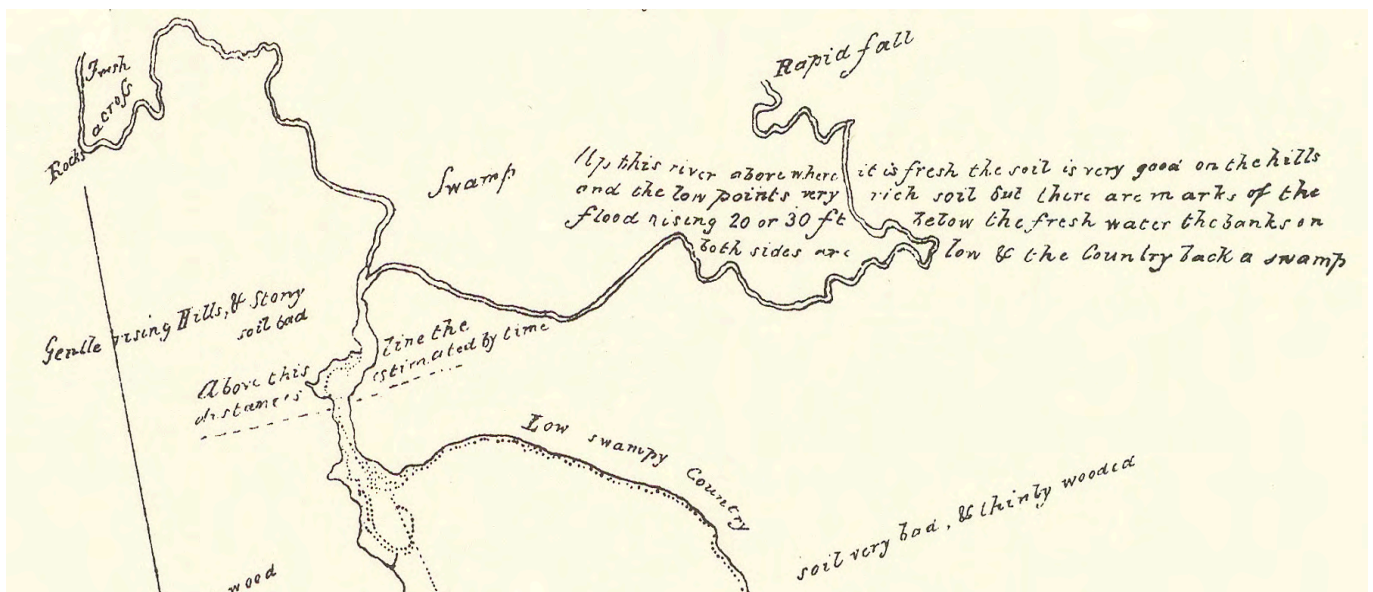 Rapid fall
Fresh
across
Rocks
Swamp
Up this river above where it is fresh the soil is very good on the hills
and the low points very rich soil but there are marks of the
flood rising 20 or 30 ft below the fresh water the banks on
both sides are low & the Country back a swamp
Gentle rising Hills, & Stony
soil bad
Above this line the
distances estimated by time
Low swampy Country
soil very bad, & thinly wooded
wood